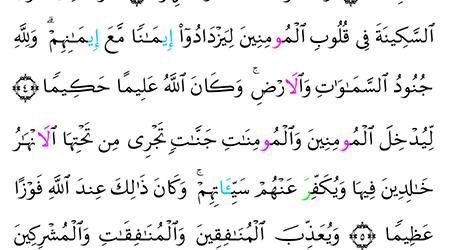 السَّكِينَةَ فِى قُلُوبِ الْمُومِنِينَ لِيَزْدَادُوٓاْ إِيمَـٰنًا مَّعَ إِيمَـٰنِهِمْ وَلِلَّهِ
جُنُودُ السَّمَـٰوَٰتِ وَالَارْضِ وَكَانَ اللَّهُ عَلِيمًا حَكِيمًا ٤
لِّيُدْخِلَ الْمُومِنِينَ وَالْمُومِنَـٰتِ جَنَّـٰتٍ تَجْرِى مِن تَحْتِهَا الَانْهَـٰرُ
خَـٰلِدِينَ فِيهَا وَيُكَفِّرَ عَنْهُمْ سَيِّـَٔاتِهِمْ وَكَانَ ذَٰلِكَ عِندَ اللَّهِ فَوْزًا
عَظِيمًا ٥ وَيُعَذِّبَ الْمُنَـٰفِقِينَ وَالْمُنَـٰفِقَـٰتِ وَالْمُشْرِكِينَ